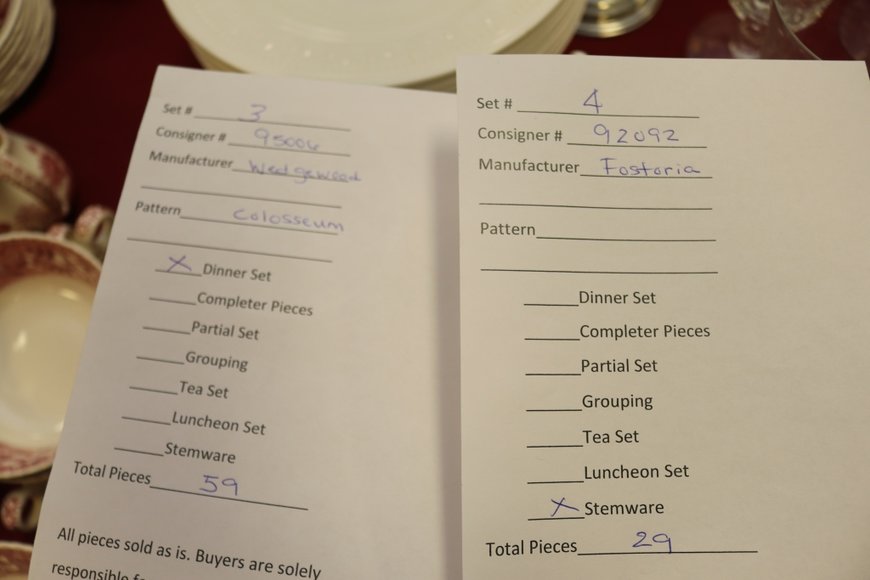 Set # 3
Consigner # 95006
Manufacturer Wedgewood
Pattern Colosseum
X Dinner Set
Completer Pieces
Partial Set
Grouping
Tea Set
Luncheon Set
Stemware
Total Pieces 59
All pieces sold as is. Buyers are solely
responsible
Set # 4
Consigner # 92092
Manufacturer Fostoria
Pattern
Dinner Set
Completer Pieces
Partial Set
Grouping
Tea Set
Luncheon Set
X Stemware
Total Pieces 29